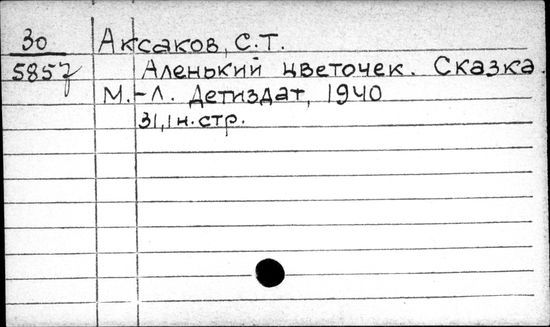 30 Аксаков, С.Т.
5857 Аленький цветочек. Сказка.
М.-Л. Детиздат, 1940
31,1 н. стр.